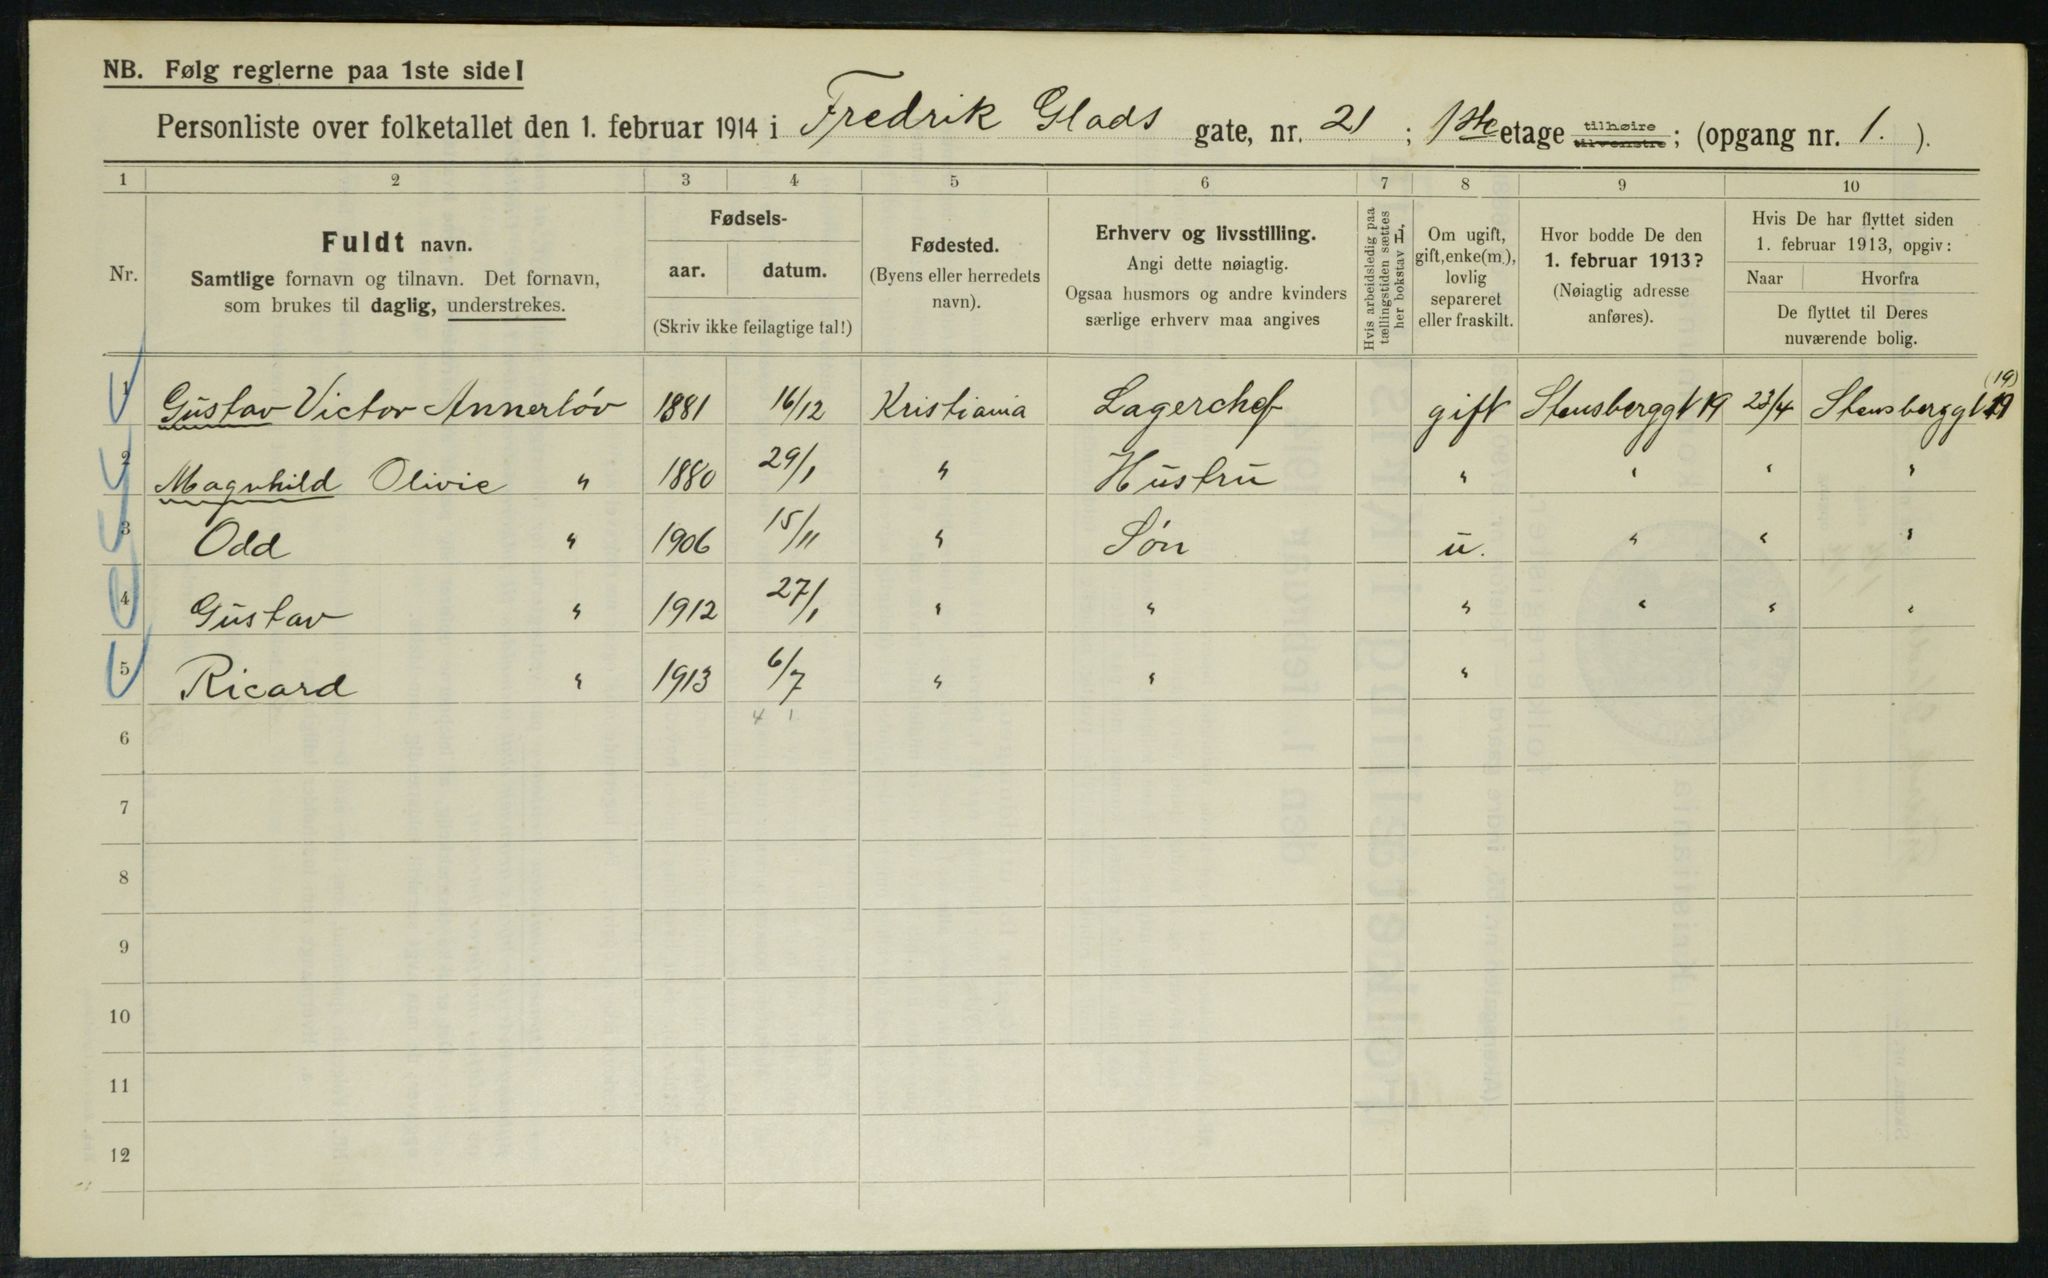 NB. Følg reglerne paa 1ste side!
Personliste over folketallet den 1. februar 1914 i Fredrik Glads gate, nr. 21 ; 1ste etage tilhøire tilvenstre ; (opgang nr. 1. ).
1 2 3 4 5 6 7 8 9 10
Nr.
Fuldt navn.
Samtlige fornavn og tilnavn. Det fornavn,
som brukes til daglig, understrekes.
Fødsels-
aar. datum.
(Skriv ikke feilagtige tal!)
Fødested.
(Byens eller herredets
navn).
Erhverv og livsstilling.
Angi dette nøiagtig.
Ogsaa husmors og andre kvinders
særlige erhverv maa angives
Hvis arbeidsledig paa
tællingstiden sættes
her bokstav H.
Om ugift,
gift, enke(m.),
lovlig
separeret
eller fraskilt.
Hvor bodde De den
1. februar 1913?
(Nøiagtig adresse
anføres).
Hvis De har flyttet siden
1. februar 1913, opgiv:
Naar Hvorfra
De flyttet til Deres
nuværende bolig.
(19)
1 Gustav Victor Annerløv 1881 16/12 Kristiania Lagerchef gift Stensberggt 19 23/4 Stensberggt 19
2 Magnhild Olivie " 1880 29/1 " Hustru " " " "
3 Odd " 1906 15/11 " Søn u. " " "
4 Gustav " 1912 27/1 " " " " " "
5 Ricard " 1913 6/7 " " "
4 1
6
7
8
9
10
11
12